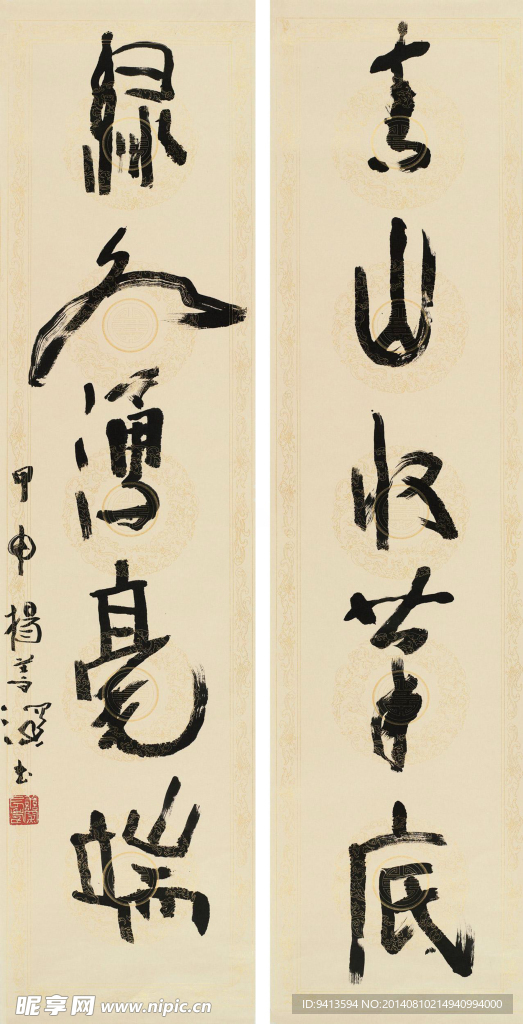 青山收筆底
湧毫端
甲申 楊善深書
昵享网 www.nipic.cn
ID:9413594 NO:20140810214940994000